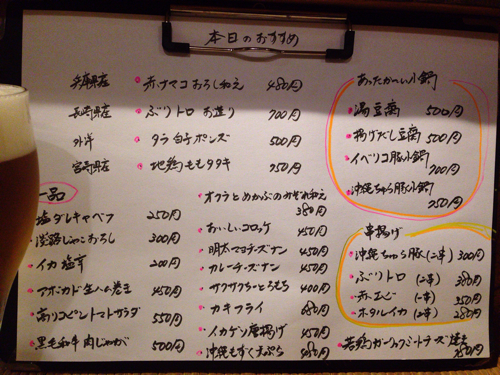 本日のおすすめ
兵庫県産 赤ナマコおろし和え 480円
長崎県産 ぶりトロ お造り 700円
外洋 タラ白子ポンズ 500円
宮崎県産 地鶏ももタタキ 750円
一品
塩ダレキャベツ 250円
淡路じゃこおろし 300円
イカ塩辛 200円
アボカド生ハム巻き 450円
高リコピントマトサラダ 550円
黒毛和牛肉じゃが 500円
オクラとめかぶのみぞれ和え 380円
おいしいコロッケ 450円
明太マヨチーズナン 450円
カレーチーズナン 450円
サクサクさつまとろもち 400円
カキフライ 680円
イカゲソ唐揚げ 450円
沖縄もずく天ぷら 480円
あったか〜い小鍋
湯豆腐 500円
揚げだし豆腐 500円
イベリコ豚小鍋 700円
沖縄ちゅら豚小鍋 750円
串揚げ
沖縄ちゅら豚(2串) 300円
ぶりトロ (2串) 380円
赤エビ (2串) 350円
ホタルイカ (2串) 280円
若鶏ガーリックトマトチーズ焼き